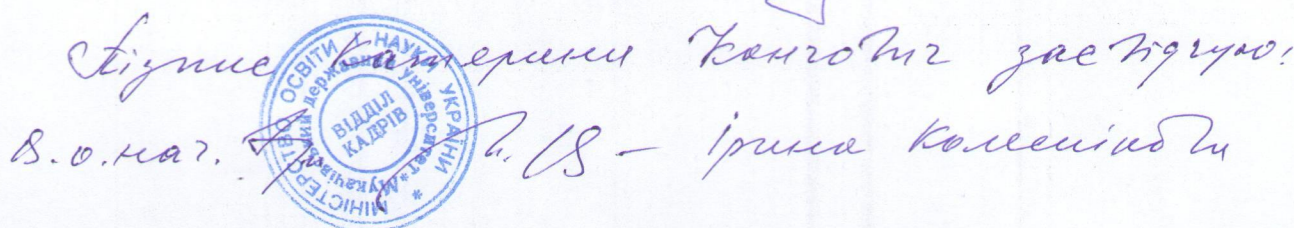 Підпис Катерини Канчович засвідчую:
В.о. нач. – Ірина
МІНІСТЕРСТВО ОСВІТИ І НАУКИ УКРАЇНИ *
Мукачівський державний університет *
ВІДДІЛ
КАДРІВ